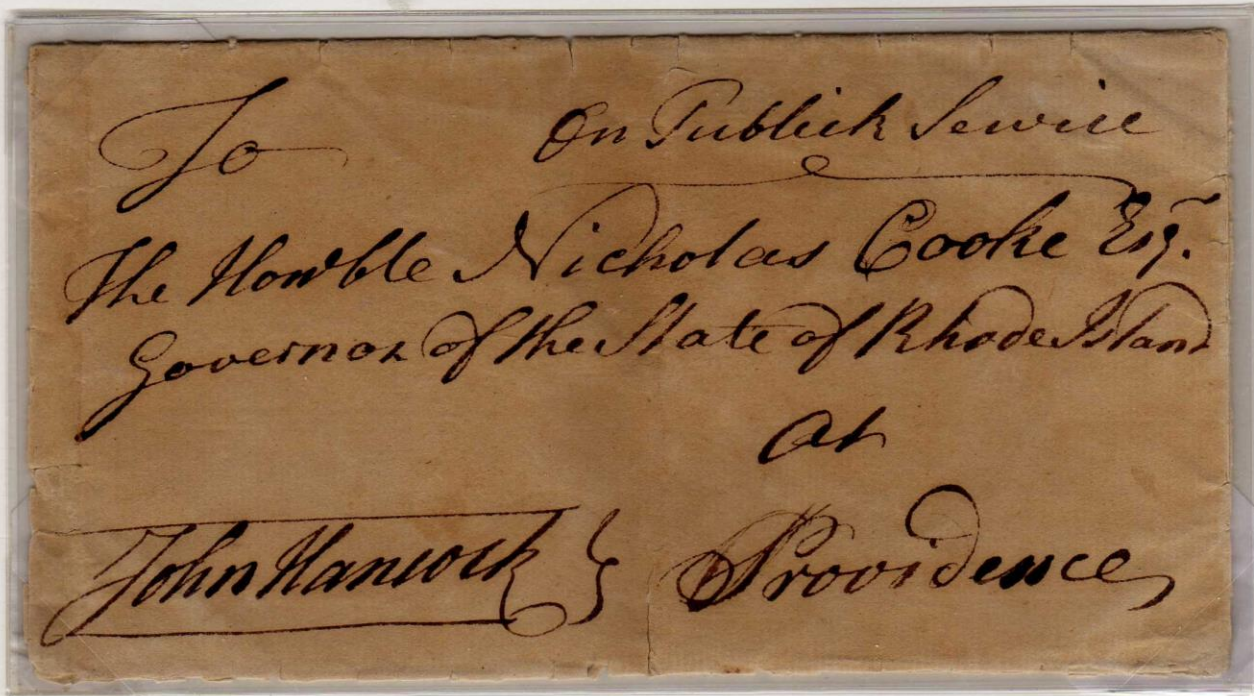 To
On Publick Service
The Hon'ble Nicholas Cooke Esq.
Governor of the State of Rhode Island
At
John Hancock
Providence